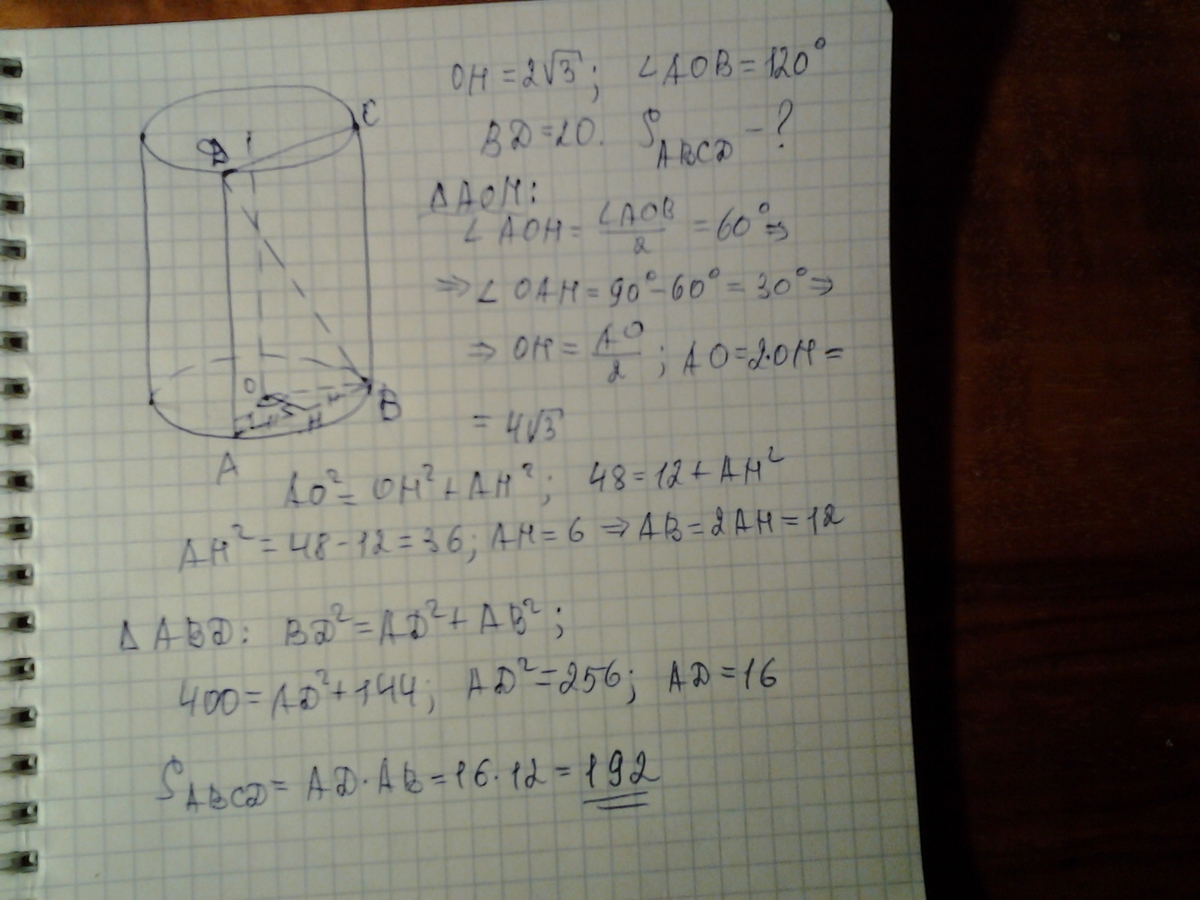 OH = 2√3; ∠AOB = 120°
BD = 20. S_ABCD - ?
ΔAOH:
∠AOH = ∠AOB/2 = 60° ⇒
⇒ ∠OAH = 90° - 60° = 30° ⇒
⇒ OH = AO/2; AO = 2·OH =
= 4√3
AO² = OH² + AH²; 48 = 12 + AH²
AH² = 48 - 12 = 36; AH = 6 ⇒ AB = 2AH = 12
ΔABD: BD² = AD² + AB²;
400 = AD² + 144; AD² = 256; AD = 16
S_ABCD = AD·AB = 16·12 = 192
D
C
O
H
B
A